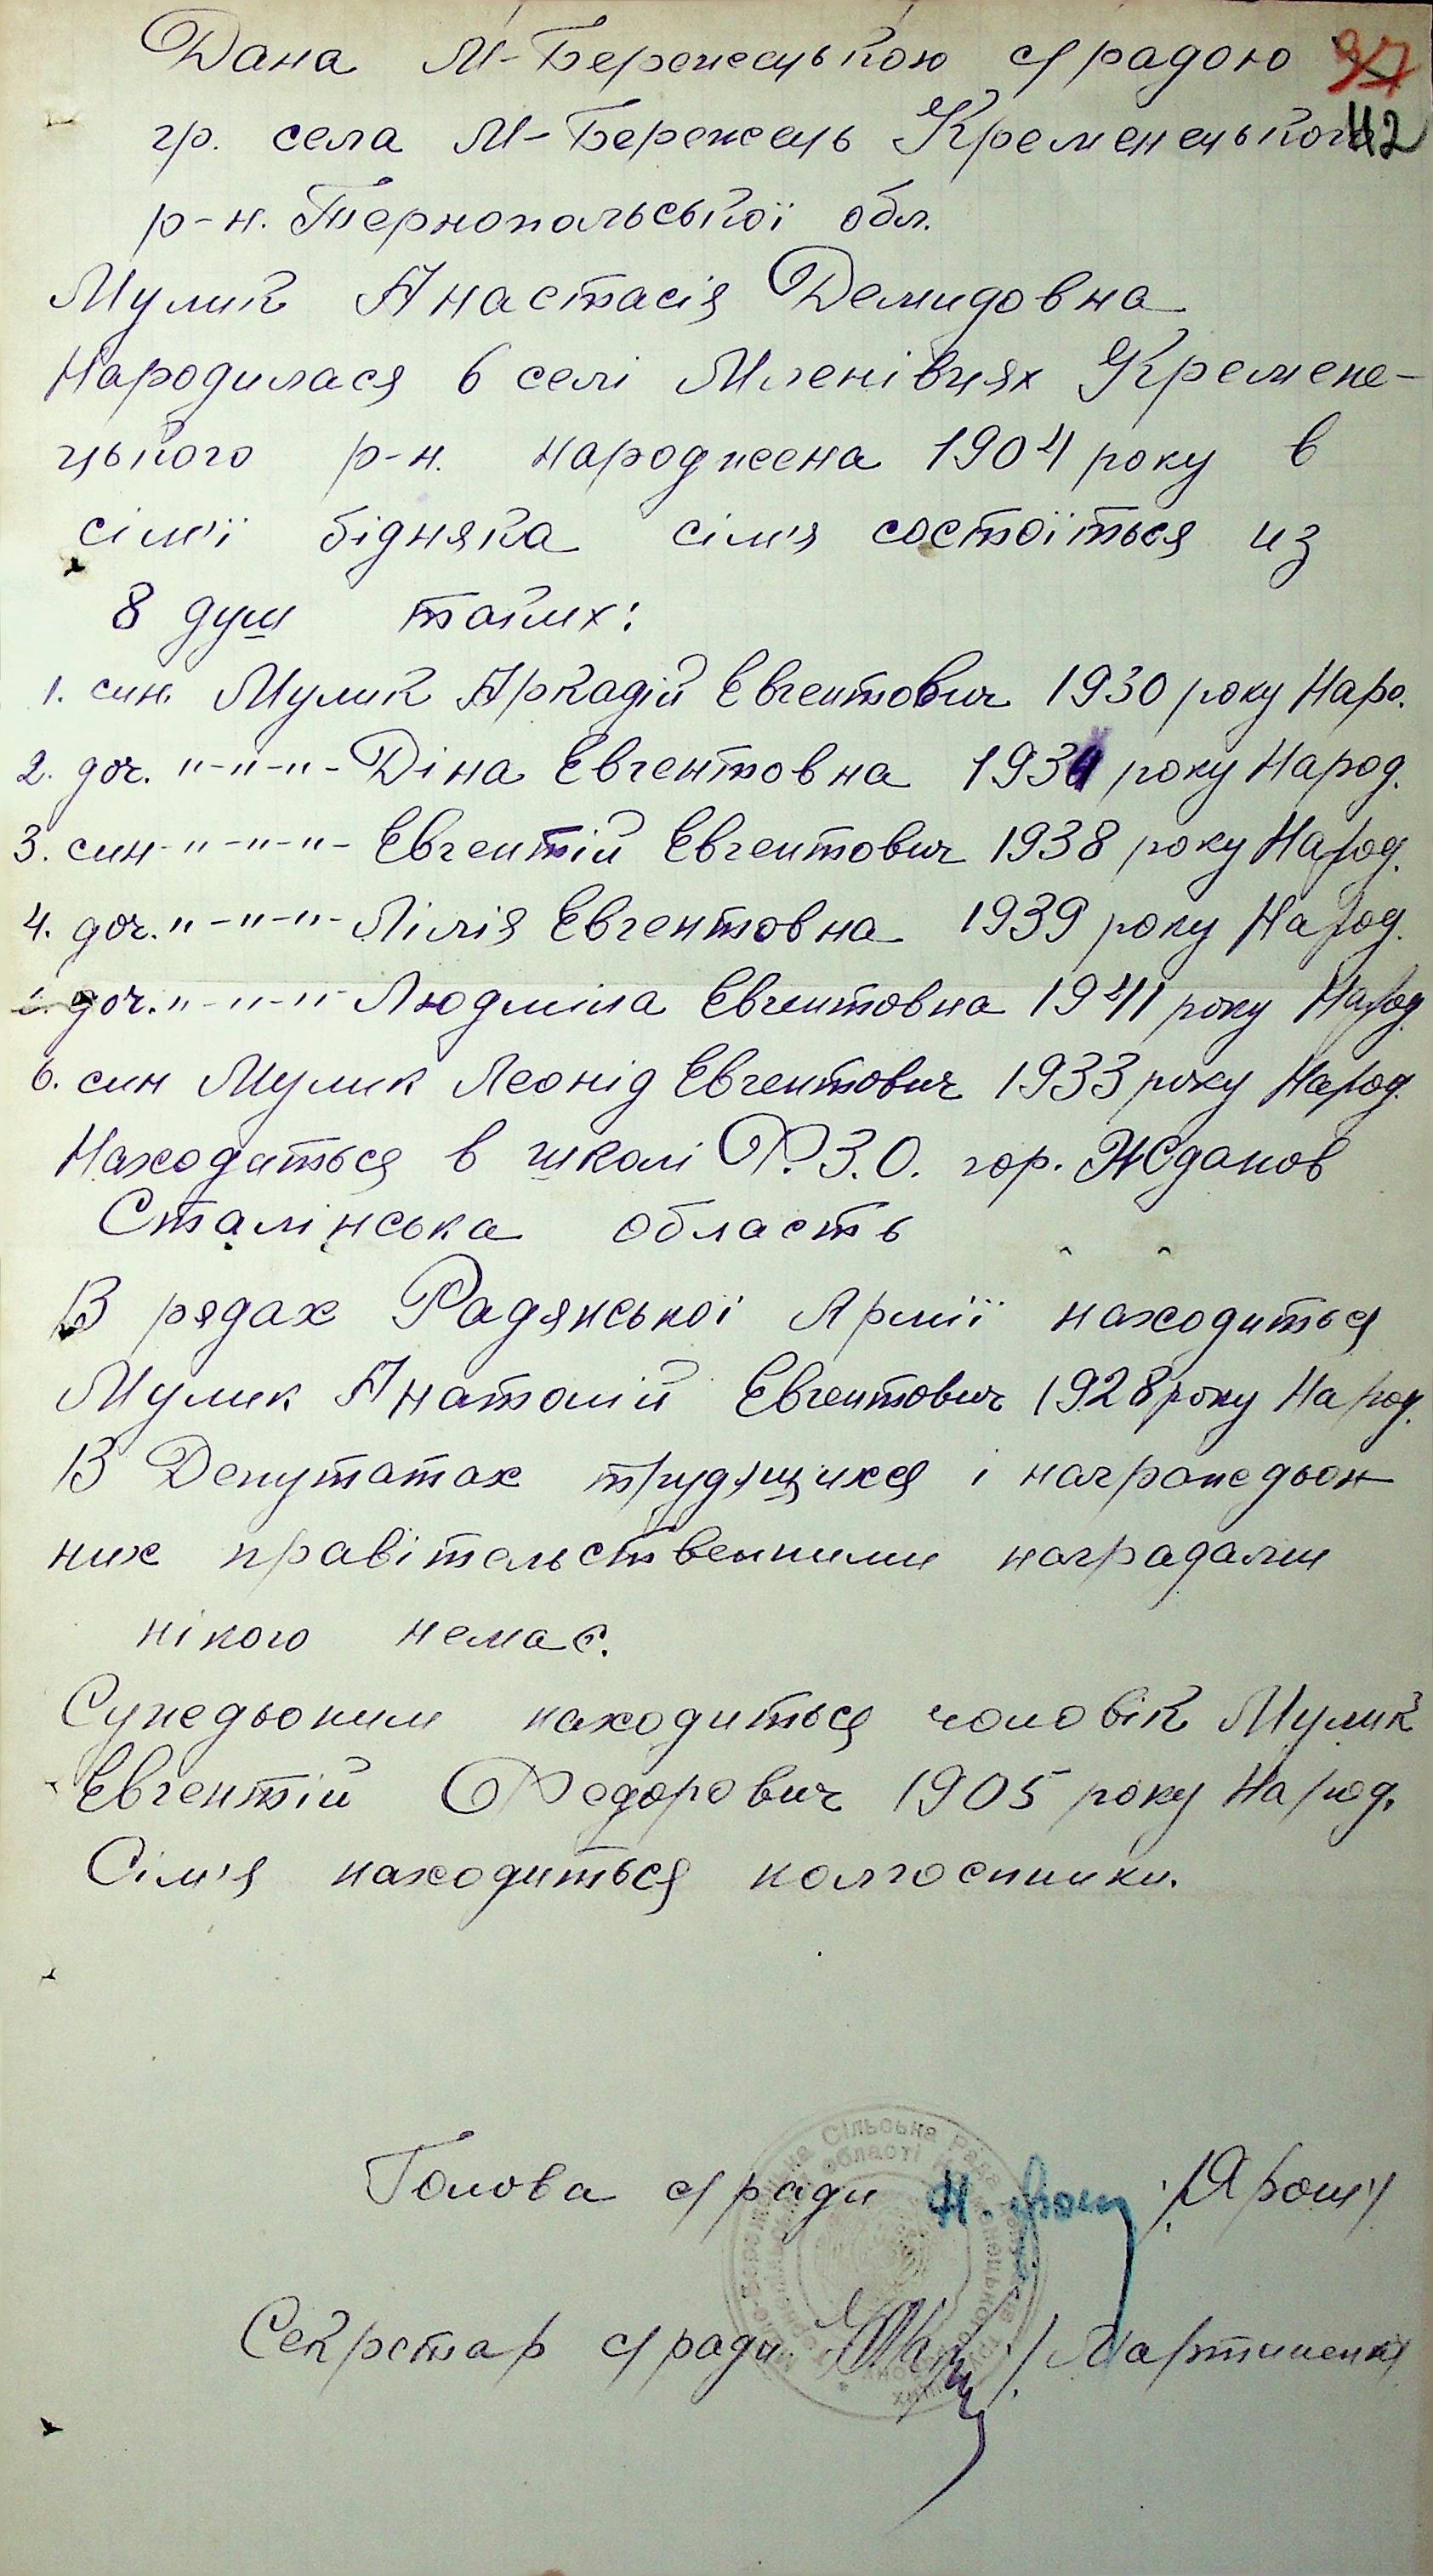 Дана М-Бережецькою с/радою 97
гр. села М-Бережець Кременецького 112
р-н. Тернопольської обл.
Мулик Анастасія Демидовна
Народилася в селі Мленівцях Кремене-
цького р-н. народжена 1904 року в
сім'ї бідняка сім'я состоїться из
8 душ таких:
1. син. Мулик Аркадій Євгентович 1930 року Наро.
2. доч. "-"-"- Діна Євгентовна 1934 року Народ.
3. син-"-"-"- Євгентій Євгентович 1938 року Народ.
4. доч. "-"-"- Лілія Євгентовна 1939 року Народ.
доч. "-"-"- Людміла Євгентовна 1941 року Народ.
6. син Мулик Леонід Євгентович 1933 року Народ.
Находиться в школі Ф.З.О. гор. Жданов
Сталінська область
В рядах Радянської Армії находиться
Мулик Анатолій Євгентович 1928 року Народ.
В Депутатах трудящихся і награжедьон
них правітельственними наградами
нікого немає.
Сужедьоним находиться чоловік Мулик
Євгентій Федорович 1905 року Народ.
Сім'я находиться колгоспники.
Голова с/ради /Ярош/
Секретар с/ради /Мартиненко/
Сільська Рада
області